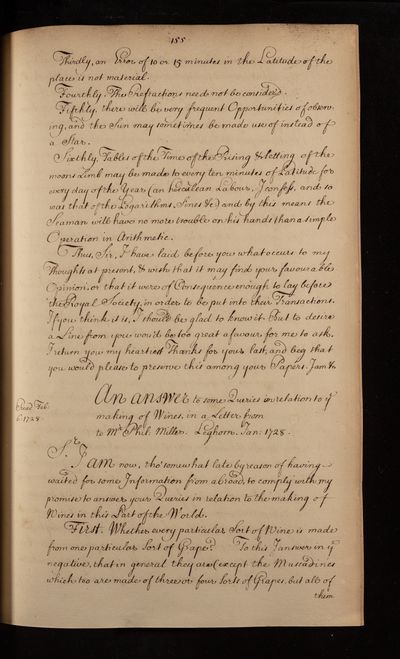 155
Thirdly, an Error of 10 or 15 minutes in the Latitude of the
place is not material.
Fourthly. The Refractions need not be consider'd.
Fifthly, there will be very frequent Opportunities of observ-
ing, and the Sun may sometimes be made use of instead of
a Star.
Sixthly, Tables of the Time of the Rising & Setting of the
moons Limb may be made to every ten minutes of Latitude for
every day of the Year (an herculean Labour, I confess, and so
was that of the Logarithms, Sines &c) and by this means the
Seaman will have no more trouble on his hands than a simple
Operation in Arithmetic.
Thus, Sir, I have laid before you what occurs to my
Thoughts at present, & wish that it may find your favourable
Opinion, or that it were of Consequence enough to lay before
the Royal Society, in order to be put into their Transactions.
If you think it is, I should be glad to know it. But to desire
a Line from you wou'd be too great a favour for me to ask.
I return you my heartiest Thanks for your last, and beg that
you would please to preserve this among your Papers. I am &c
An answer to some Queries in relation to ye
making of Wines, in a Letter from
to Mr. Phil. Miller. Leghorn. Jan: 1728.
Read Feb:
6. 1728.
Sr.
I am now, tho' somewhat late by reason of having
waited for some Information from abroad, to comply with my
promise to answer your Queries in relation to the making of
Wines in this Part of the World.
First. Whether every particular Sort of Wine is made
from one particular Sort of Grape? To this I answer in ye
negative, that in general they are (except the Muscadines
which too are made of three or four Sorts of Grapes, but all of
them